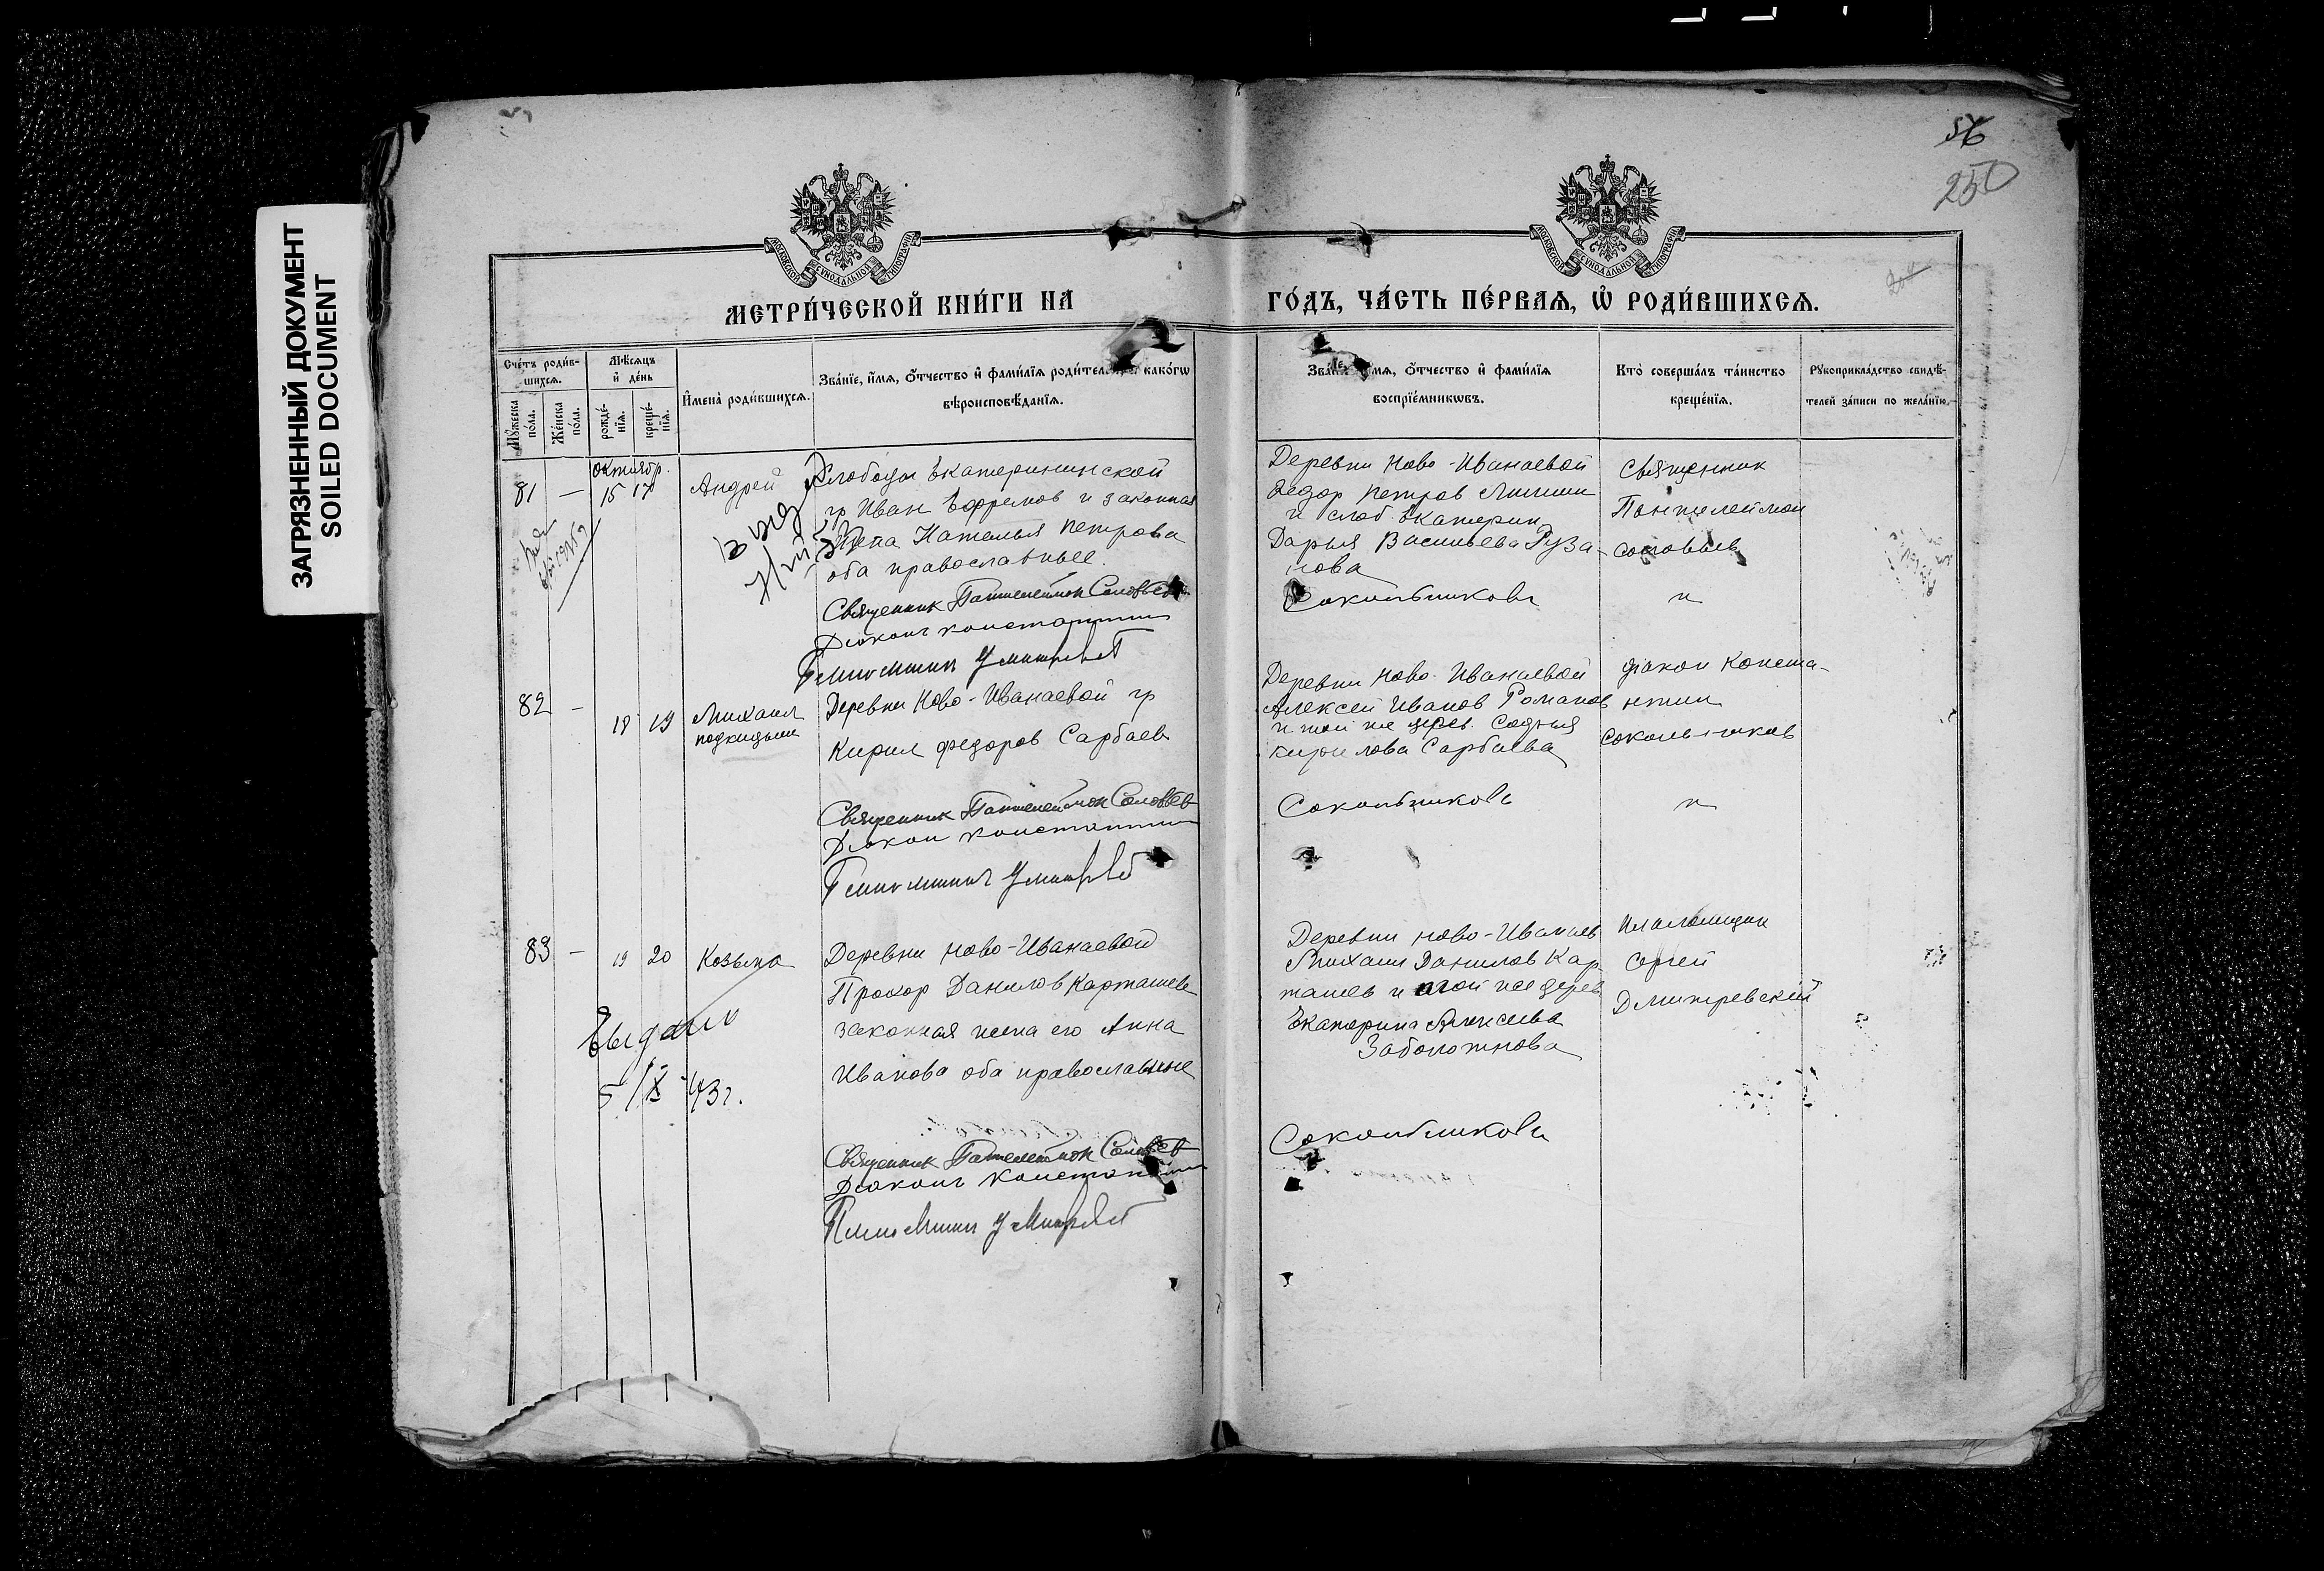 ЗАГРЯЗНЕННЫЙ ДОКУМЕНТ
SOILED DOCUMENT
56
250
МОСКОВСКОЙ СУНОДАЛЬНОЙ ТИПОГРАФІИ
МОСКОВСКОЙ СУНОДАЛЬНОЙ ТИПОГРАФІИ
МЕТРИ́ЧЕСКОЙ КНИ́ГИ НА
ГО́ДЪ, ЧА́СТЬ ПЕ́РВАЯ, Ѡ РОДИ́ВШИХСЯ.
Сче́тъ роди́в-
шихся.
Мѣ́сяцъ
и҆ де́нь
Мꙋ́жеска
по́ла.
Же́нска
по́ла.
рожде́-
нїя.
креще́-
нїя.
И҆мена̀ роди́вшихся.
Зва́нїе, и҆́мя, ѻ҆́тчество и҆ фами́лїя родител како́гѡ
вѣроисповѣ́данїя.
Зва́нїе мя, ѻ҆́тчество и҆ фами́лїя
воспрїе́мникѡвъ.
Кто̀ соверша́лъ та́инство
креще́нїя.
Рꙋкоприкла́дство свидѣ́-
телей за́писи по жела́нїю.
октябр.
81 — 15 17 Андрей
Слободы Екатерининской
гр Иван Ефремов и законная
жена Наталья Петрова
оба православные.
Священник Пантелеймон Соловьев
Диконъ Константин
Деревни Ново-Иванаевой
Федор Петров
и слоб. Екатерин
Дарья Васильева Руза-
нова
Сокольниковъ
Священник
Пантилеймон
Соловьев
"
82 — 18 19 Михаил
подкидыш
Деревни Ново-Иванаевой гр
Кирил Федоров Сарбаев
Священник Пантелеймон Соловьев
Диакон Константин
Деревни Ново-Иванаевой
Алексей Иванов Романов
и той же дерев. Софья
Кирилова Сарбаева
Сокольниковъ
Дiакон Конста-
нтин
Сокольников
"
83 — 19 20 Козьма
Выдано
5/X 43г.
Деревни Ново-Иванаевой
Прохор Данилов Карташев
законная жена его Анна
Иванова оба православные
Священник Пантелеймон Соловьев
Диаконъ Константин
Деревни Ново-Иванаев
Михаил Данилов Кар-
ташев и той же дерев
Екатерина Алексеева
Заболотнова
Сокольниковъ
Псаломщик
Сергей
Дмитревскiй